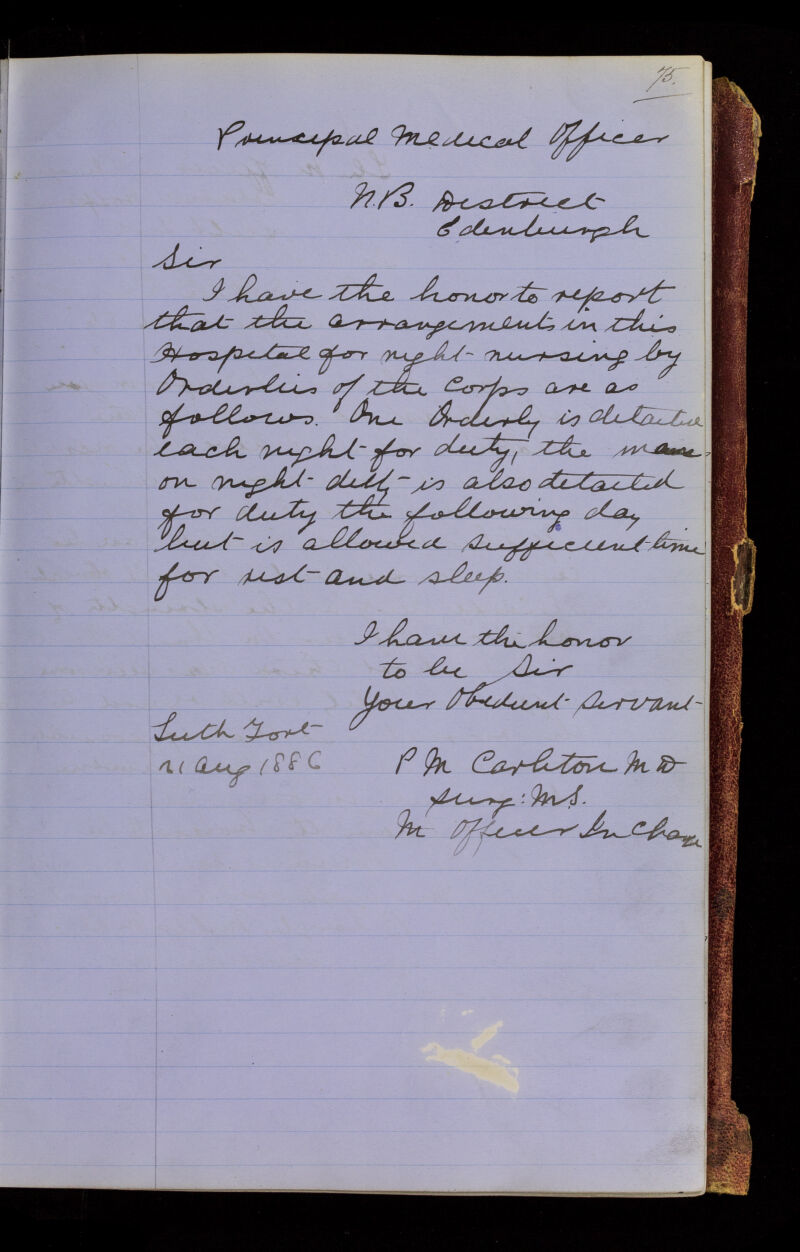 75.
Principal Medical Officer
N.B. District
Edenburgh
Sir
I have the honor to report
that the arrangements in this
Hospital for night nursing by
Orderlies of the Corps are as
follows. One Orderly is detailed
each night for duty, the man
on night duty is also detailed
for duty the following day
but is allowed sufficient time
for rest and sleep.
I have the honor
to be Sir
Your Obedient Servant
Leith Fort
21 Aug 1886
P M Carleton MD
Surg: M.S.
M Officer In Charge